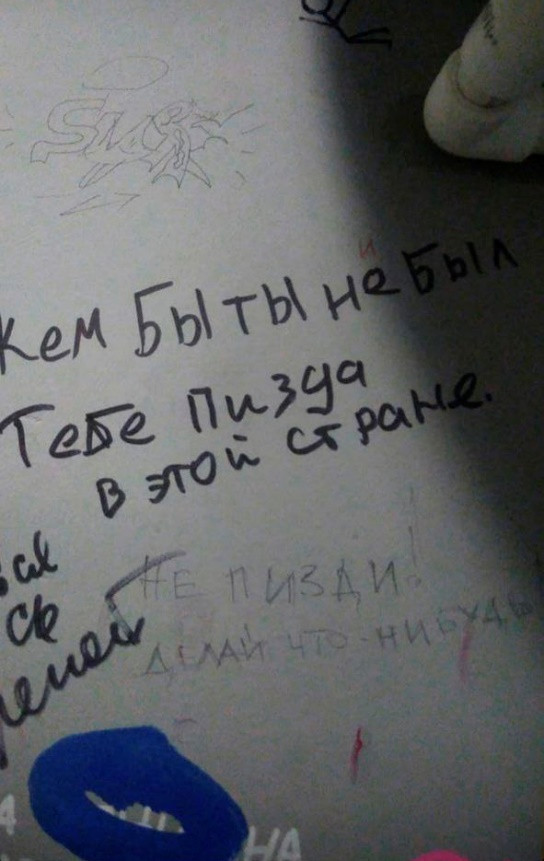 Кем Бы ты не Был
и
Тебе пизда
в этой стране.
НЕ ПИЗДИ!
ДЕЛАЙ ЧТО-НИБУДЬ
НА